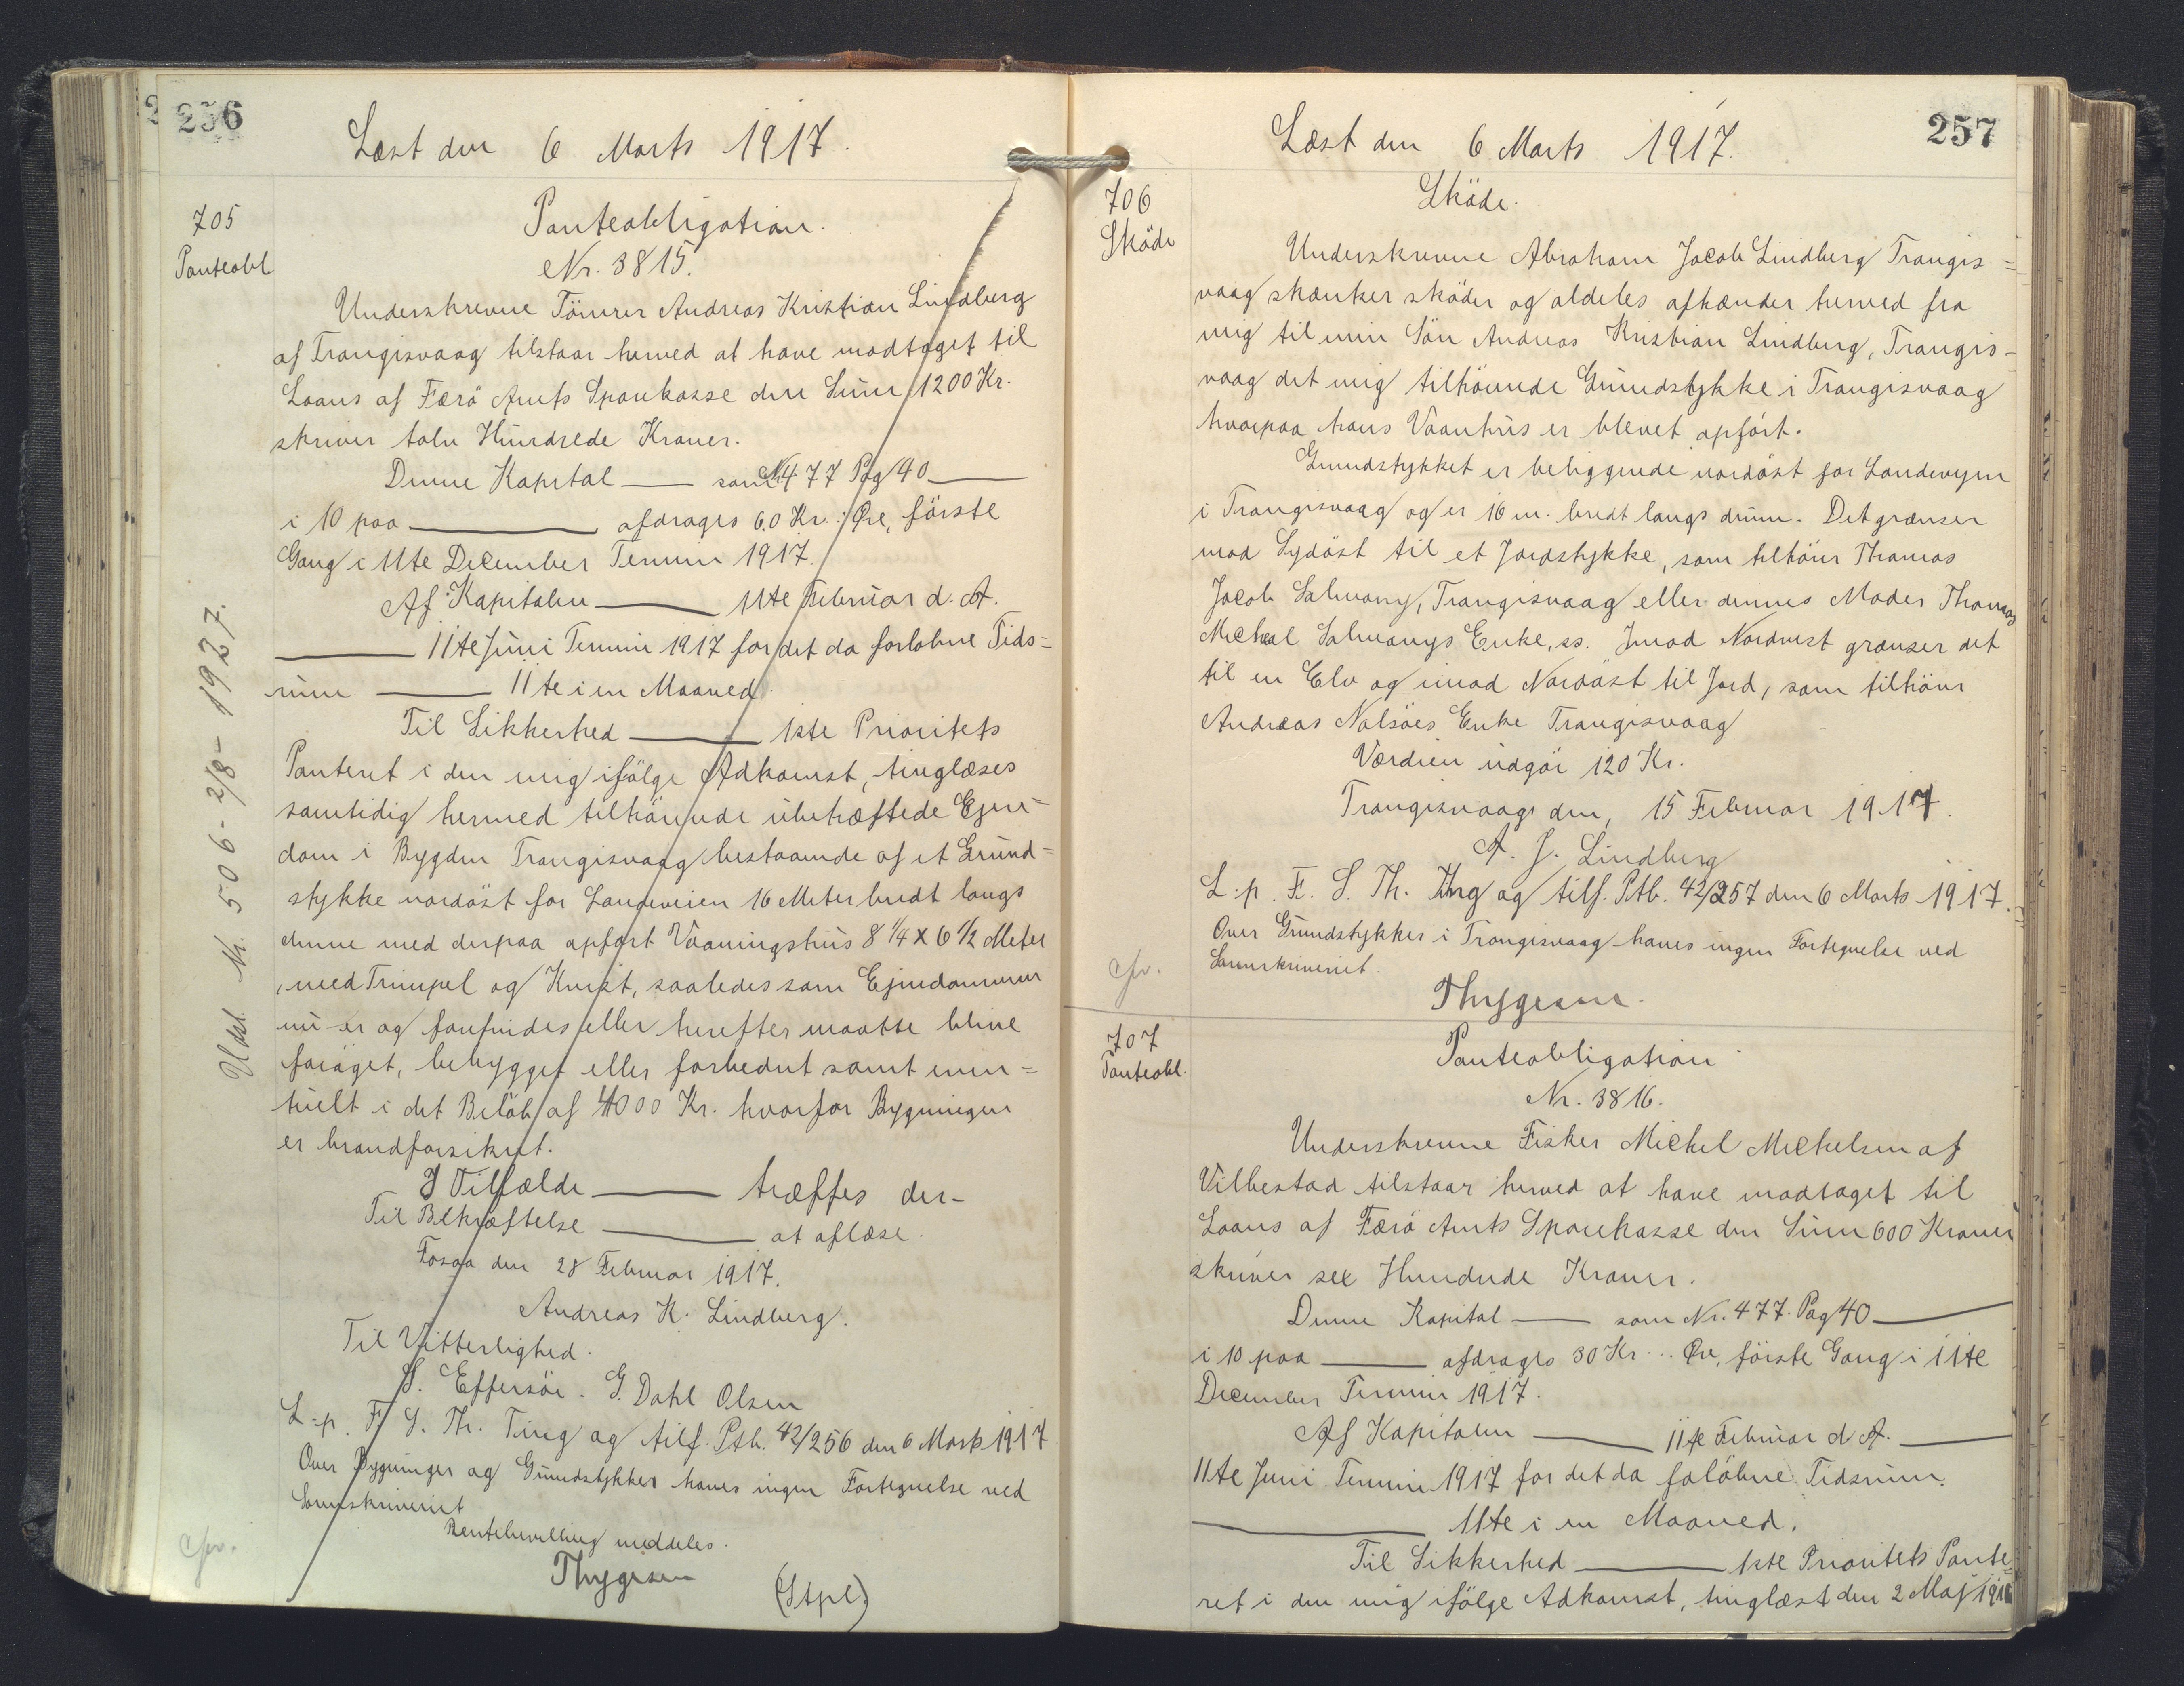 256
Læst den 6 Marts 1917.
705
Panteobl
Panteobligation.
Nr. 3815.
Underskrevne Tömrer Andreas Kristian Lindberg
af Trangisvaag tilstaar herved at have modtaget til
Laans af Færö Amts Sparekasse den Sum 1200 Kr.
skriver tolv Hundrede Kroner.
Denne Kapital — som Nr 477 Pag 40 —
i 10 paa — afdrages 60 Kr. : Øre, förste
Gang i 11te December Termin 1917.
Af Kapitalen — 11te Februar d. A.
— 11te Juni Termin 1917 for det da forlobne Tids=
rum — 11te i en Maaned.
Til Sikkerhed — 1ste Prioritets
Panteret i den mig ifölge Adkomst, tinglæses
samtidig hermed tilhörende ubehæftede Ejen=
dom i Bygden Trangisvaag bestaaende af et Grund=
stykke nordöst for Landeveien 16 Meter bredt langs
denne med derpaa opfört Vaaningshus 8 1/4 x 6 1/2 Meter
, med Trimpel og Kvist, saaledes som Ejendommen
nu er og forefindes eller herefter maatte blive
foröget, bebygget eller forbedret samt even=
tuelt i det Belöb af 4000 Kr. hvorfor Bygningen
er brandforsikret.
I Tilfælde — træffes der-
Til Bekræftelse — at aflæse.
den 28 Februar 1917.
Andreas K. Lindberg.
Til Vitterlighed.
S. Effersöe. G. Dahl Olsen
L. p. F. S. Th. Ting og tilf. Ptb. 42/256 den 6 Marts 1917
Over Bygninger og Grundstykker haves ingen Fortegnelse ved
Sorenskriveriet
Rentebevilling meddeles.
Thygesen
(Stpl.)
cfr.
Udsl. Nr. 506 - 2/8 - 1927.
257
Læst den 6 Marts 1917.
706
Sköde
Sköde.
Underskrevne Abraham Jacob Lindberg Trangis=
vaag skænker sköder og aldeles afhænder herved fra
mig til min Sön Andreas Kristian Lindberg, Trangis-
vaag det mig tilhörende Grundstykke i Trangisvaag
hvorpaa hans Vaanhus er blevet opfört.
Grundstykket er beliggende nordöst for Landevejen
i Trangisvaag og er 16 m. bredt langs denne. Det grænser
mod Sydöst til et Jordstykke, som tilhörer Thomas
Jacob Salmany, Trangisvaag eller dennes Moder Thomas
Micheal Salmanys Enke, ss. Imod Nordvest grænser det
til en Elv og imod Nordöst til Jord, som tilhörer
Andreas Nolsöes Enke Trangisvaag
Værdien udgör 120 Kr.
Trangisvaag den, 15 Februar 1917.
A. J. Lindberg
L. p. F. S. Th. Ting og tilf. Ptb. 42/257 den 6 Marts 1917.
Over Grundstykker i Trangisvaag haves ingen Fortegnelse ved
Sorenskriveriet.
cfr.
Thygesen.
707
Panteobl.
Panteobligation
Nr. 3816.
Underskrevne Fisker Michel Michelsen af
Vilbestad tilstaar herved at have modtaget til
Laans af Færö Amts Sparekasse den Sum 600 Kroner
skriver sex Hundrede Kroner.
Denne Kapital — som Nr. 477. Pag 40 —
i 10 paa — afdrages 30 Kr ... Øre, förste Gang i 11te
December Termin 1917.
Af Kapitalen — 11te Februar d A. —
11te Juni Termin 1917 for det da folöbne Tidsrum.
— 11te i en Maaned.
Til Sikkerhed — 1ste Prioritets Pante=
ret i den mig ifölge Adkomst, tinglæst den 2 Maj 1916